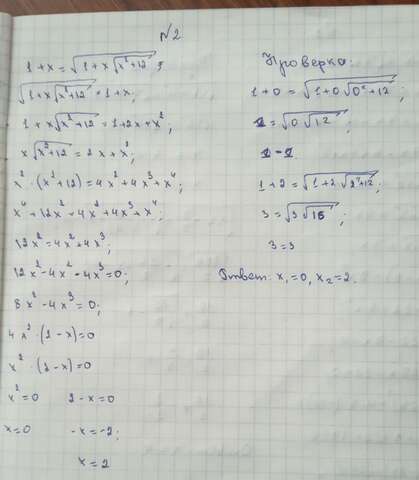 №2
1+x = √(1+x√(x²+12));
√(1+x√(x²+12)) = 1+x;
1+x√(x²+12) = 1+2x+x²;
x√(x²+12) = 2x+x²;
x²·(x²+12) = 4x²+4x³+x⁴;
x⁴+12x² = 4x²+4x³+x⁴;
12x² = 4x²+4x³;
12x²-4x²-4x³=0;
8x²-4x³=0;
4x²·(2-x)=0
x²·(2-x)=0
x²=0 2-x=0
x=0 -x=-2;
x=2
Проверка:
1+0 = √(1+0√(0²+12));
1 = √(0√12);
1=1
1+2 = √(1+2√(2²+12));
3 = √(3√16);
3=3
Ответ: x₁=0, x₂=2.